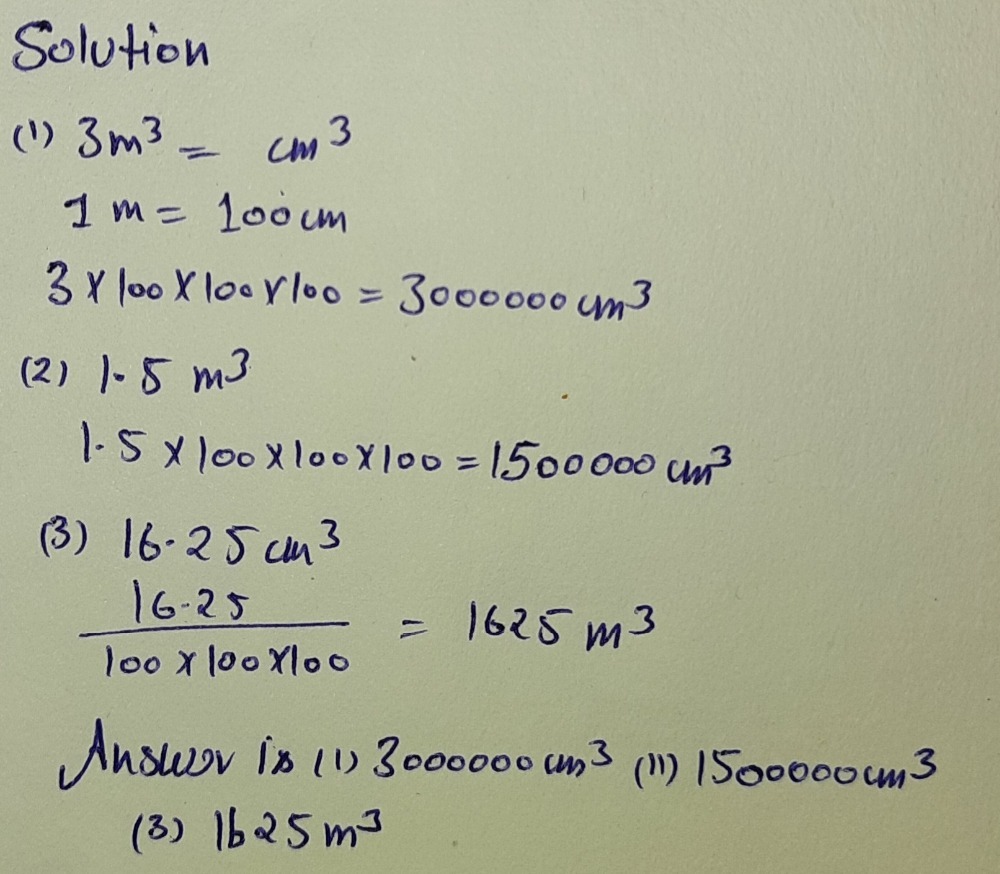 Solution
(1) 3m³ = cm³
1 m = 100 cm
3 x 100 x 100 x 100 = 3000000 cm³
(2) 1.5 m³
1.5 x 100 x 100 x 100 = 1500000 cm³
(3) 16.25 cm³
16.25
100 x 100 x 100 = 1625 m³
Answer is (1) 3000000 cm³ (11) 1500000 cm³
(3) 1625 m³